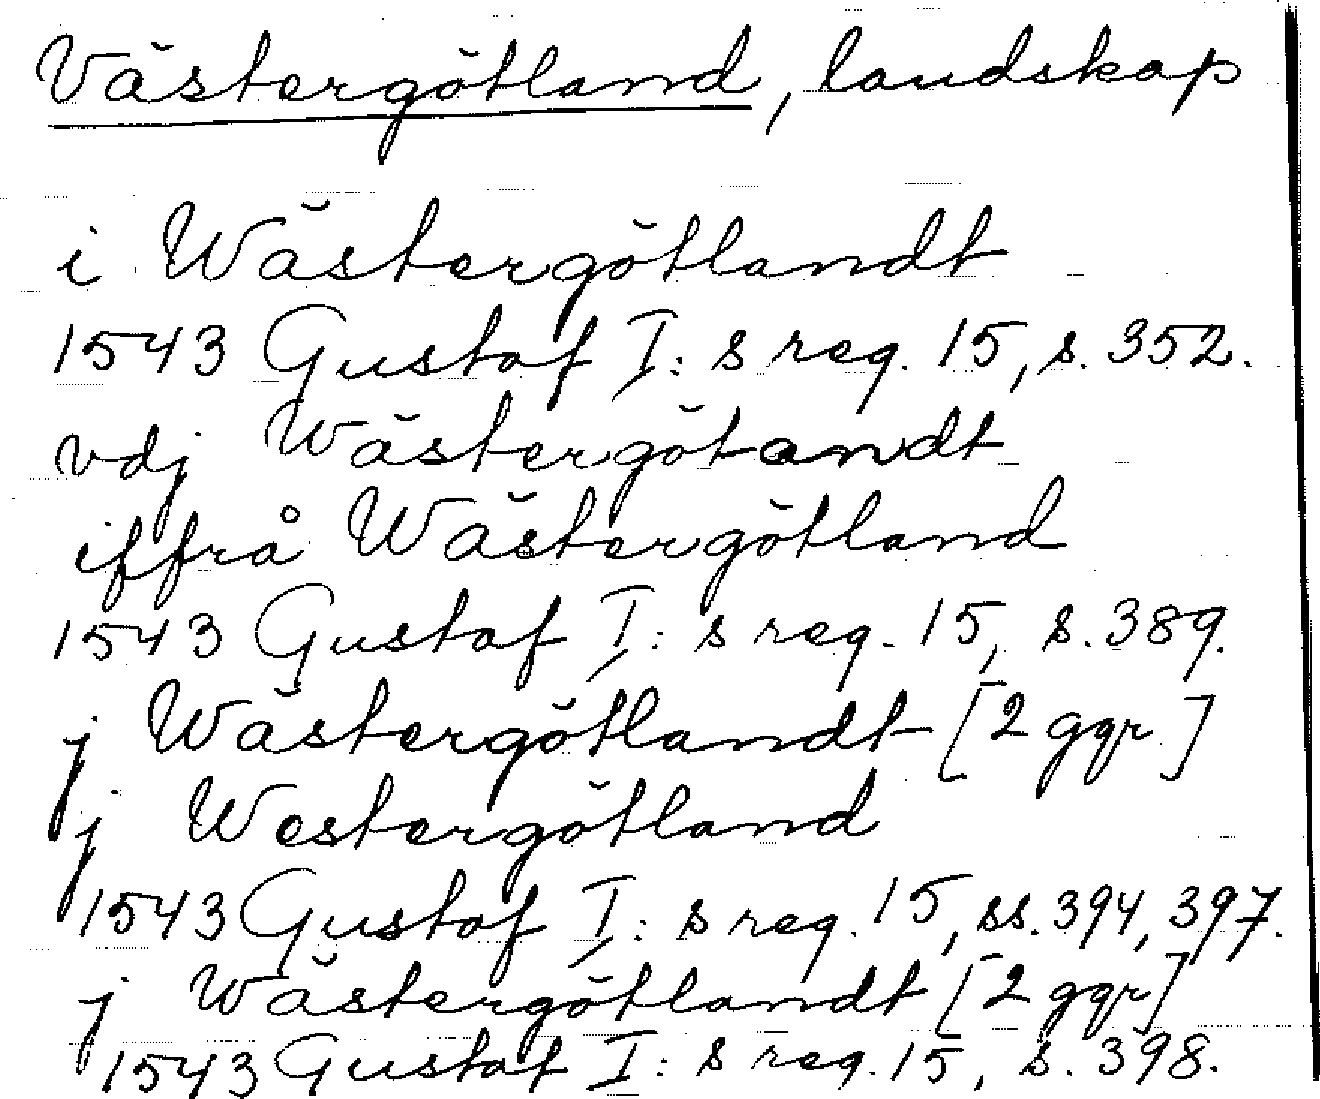 Västergötland, landskap
i Wästergötlandt
1543 Gustaf I:s reg. 15, s. 352.
vdj Wästergötandt
iffrå Wästergötland
1543 Gustaf I:s reg. 15, s. 389.
j Wästergötlandt [2 ggr.]
j Westergötland
1543 Gustaf I:s reg. 15, ss. 394, 397.
j Wästergötlandt [2 ggr]
1543 Gustaf I:s reg. 15, s. 398.